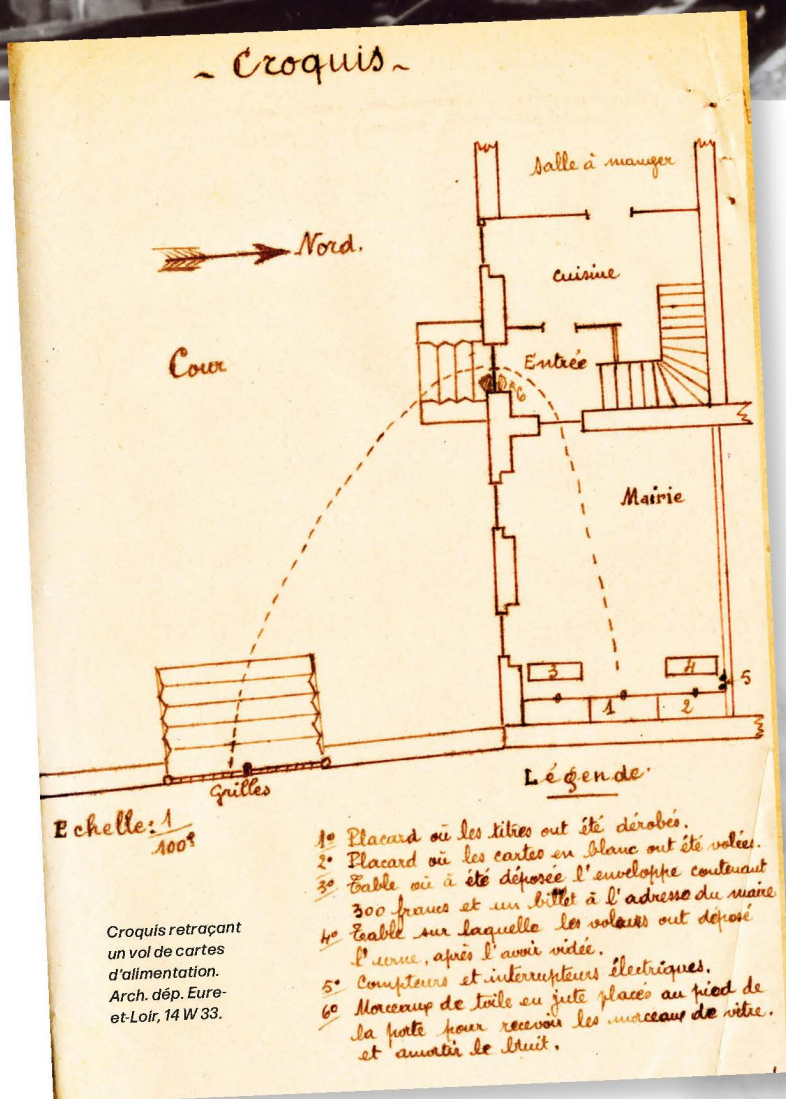 ~ Croquis ~
Salle à manger
Nord.
Cuisine
Cour
Entrée
6
Mairie
3
4
5
1
2
Grilles
Echelle: 1
100e
Légende.
1º Placard où les titres ont été dérobés.
2º Placard où les cartes en blanc ont été volées.
3º Table où à été déposée l'enveloppe contenant
300 francs et un billet à l'adresse du maire
4º Table sur laquelle les voleurs ont déposé
l'urne, après l'avoir vidée.
5º Compteurs et interrupteurs électriques.
6º Morceaux de toile en jute placés au pied de
la porte pour recevoir les morceaux de vitre.
et amortir le bruit.
Croquis retraçant
un vol de cartes
d'alimentation.
Arch. dép. Eure-
et-Loir, 14 W 33.